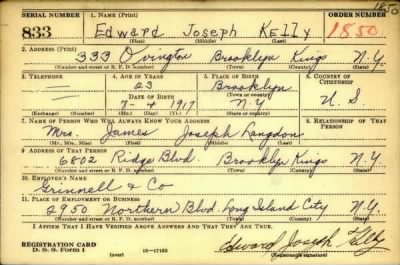 SERIAL NUMBER 1. NAME (Print) ORDER NUMBER
1850
833 Edward Joseph Kelly 1850
(First) (Middle) (Last)
2. ADDRESS (Print)
333 Ovington Brooklyn Kings N.Y.
(Number and street or R. F. D. number) (Town) (County) (State)
3. TELEPHONE 4. AGE IN YEARS 5. PLACE OF BIRTH 6. COUNTRY OF CITIZENSHIP
— 23 Brooklyn
DATE OF BIRTH (Town or county)
— 7-4-1917 N.Y. U.S.
(Exchange) (Number) (Mo.) (Day) (Yr.) (State or country)
7. NAME OF PERSON WHO WILL ALWAYS KNOW YOUR ADDRESS 8. RELATIONSHIP OF THAT PERSON
Mrs. James Joseph Langdon
(Mr., Mrs., Miss) (First) (Middle) (Last)
9. ADDRESS OF THAT PERSON
6802 Ridge Blvd. Brooklyn Kings N.Y.
(Number and street or R. F. D. number) (Town) (County) (State)
10. EMPLOYER'S NAME
Grinnell & Co
11. PLACE OF EMPLOYMENT OR BUSINESS
2950 Northern Blvd. Long Island City N.Y.
(Number and street or R. F. D. number) (Town) (County) (State)
I AFFIRM THAT I HAVE VERIFIED ABOVE ANSWERS AND THAT THEY ARE TRUE.
REGISTRATION CARD
D. S. S. Form 1 (over) 16-17105 Edward Joseph Kelly
(Registrant's signature)